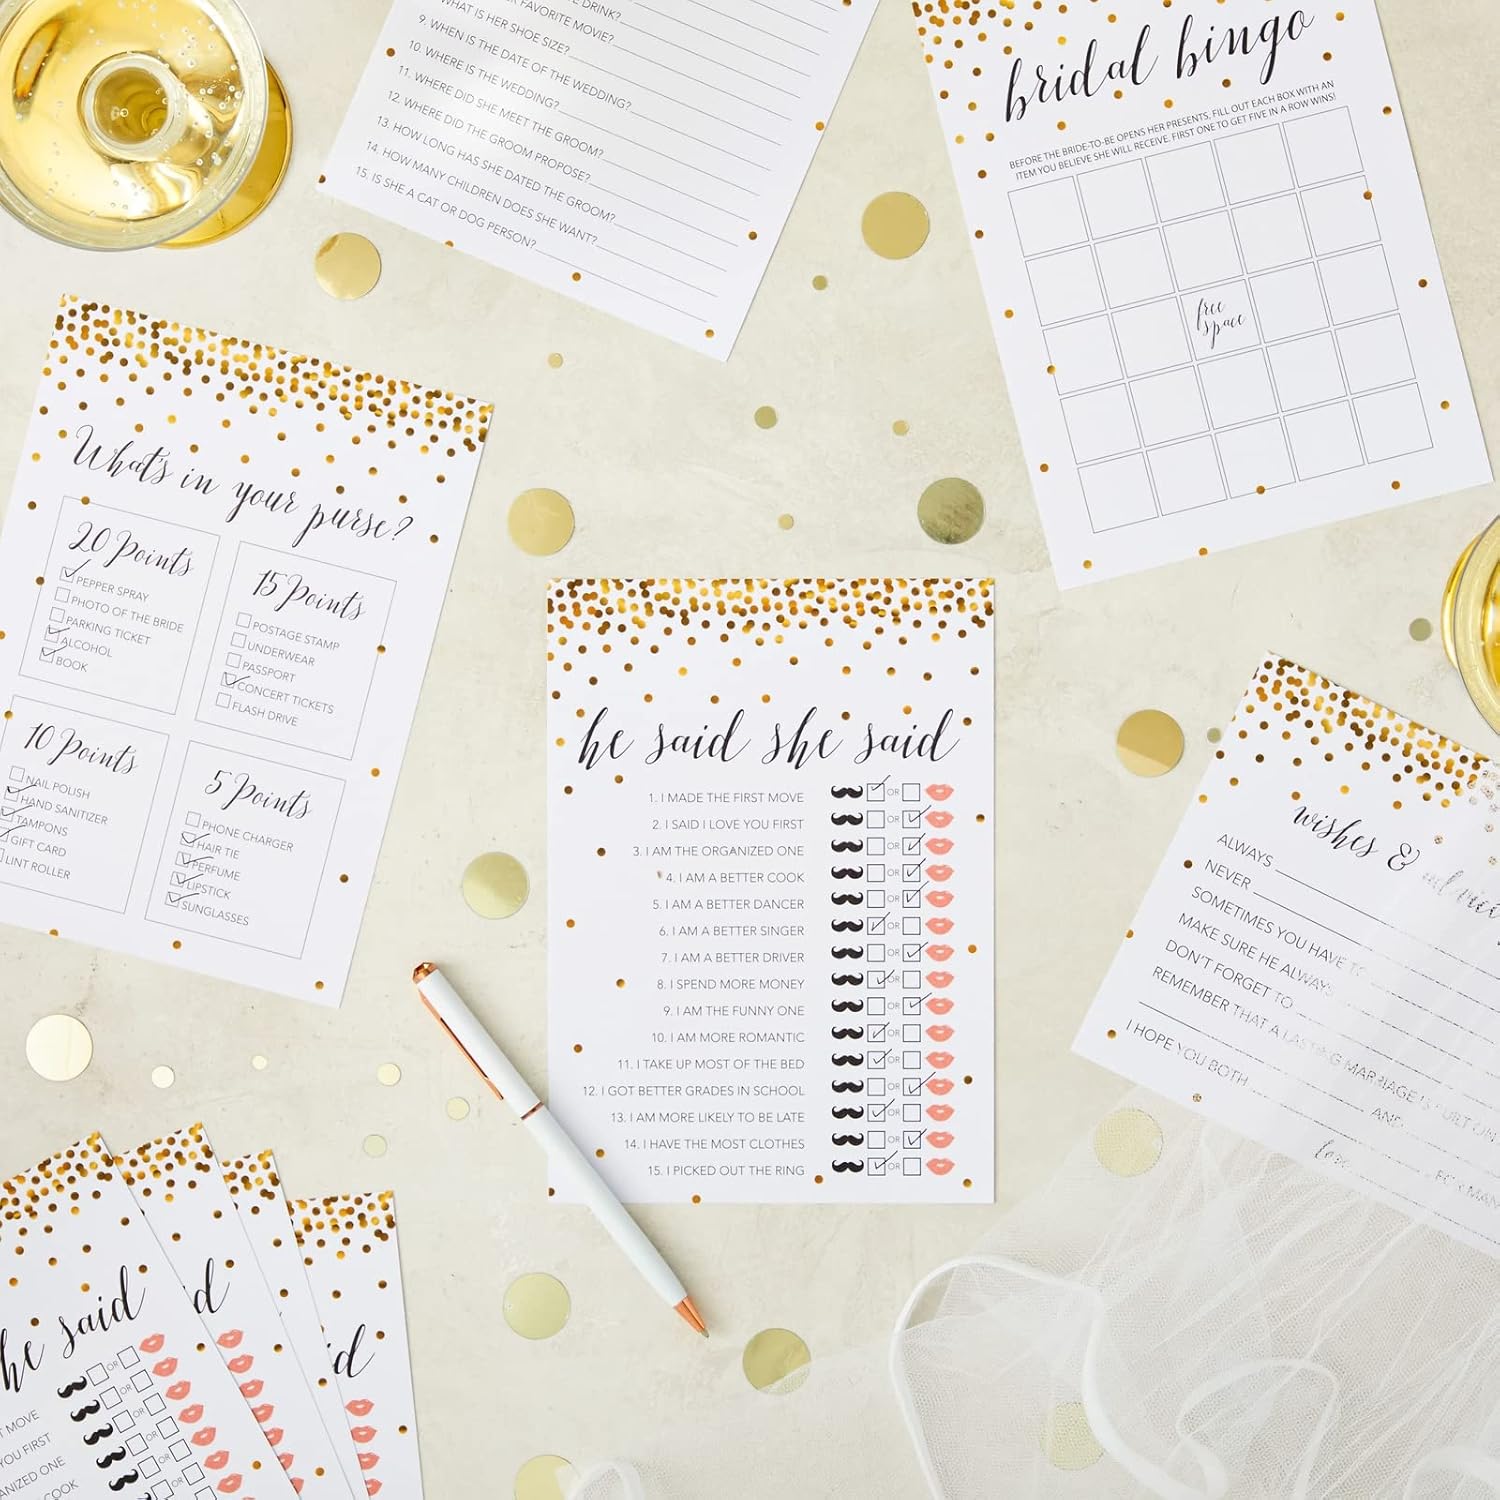 DRINK?
FAVORITE MOVIE?
WHAT IS HER SHOE SIZE?
9. WHEN IS THE DATE OF THE WEDDING?
10. WHERE IS THE WEDDING?
11. WHERE DID SHE MEET THE GROOM?
12. WHERE DID THE GROOM PROPOSE?
13. HOW LONG HAS SHE DATED THE GROOM?
14. HOW MANY CHILDREN DOES SHE WANT?
15. IS SHE A CAT OR DOG PERSON?
bridal bingo
BEFORE THE BRIDE-TO-BE OPENS HER PRESENTS, FILL OUT EACH BOX WITH AN
ITEM YOU BELIEVE SHE WILL RECEIVE. FIRST ONE TO GET FIVE IN A ROW WINS!
free
space
What's in your purse?
20 Points
PEPPER SPRAY
PHOTO OF THE BRIDE
PARKING TICKET
ALCOHOL
BOOK
15 Points
POSTAGE STAMP
UNDERWEAR
PASSPORT
CONCERT TICKETS
FLASH DRIVE
10 Points
NAIL POLISH
HAND SANITIZER
TAMPONS
GIFT CARD
LINT ROLLER
5 Points
PHONE CHARGER
HAIR TIE
PERFUME
LIPSTICK
SUNGLASSES
he said she said
1. I MADE THE FIRST MOVE OR
2. I SAID I LOVE YOU FIRST OR
3. I AM THE ORGANIZED ONE OR
4. I AM A BETTER COOK OR
5. I AM A BETTER DANCER OR
6. I AM A BETTER SINGER OR
7. I AM A BETTER DRIVER OR
8. I SPEND MORE MONEY OR
9. I AM THE FUNNY ONE OR
10. I AM MORE ROMANTIC OR
11. I TAKE UP MOST OF THE BED OR
12. I GOT BETTER GRADES IN SCHOOL OR
13. I AM MORE LIKELY TO BE LATE OR
14. I HAVE THE MOST CLOTHES OR
15. I PICKED OUT THE RING OR
wishes &
ALWAYS
NEVER
SOMETIMES YOU HAVE TO
MAKE SURE HE ALWAYS
DON'T FORGET TO
REMEMBER THAT A LASTING MARRIAGE IS BUILT ON
I HOPE YOU BOTH AND
love, FOR MANY
he said
OR
MOVE OR
YOU FIRST OR
OR
COOK OR
OR